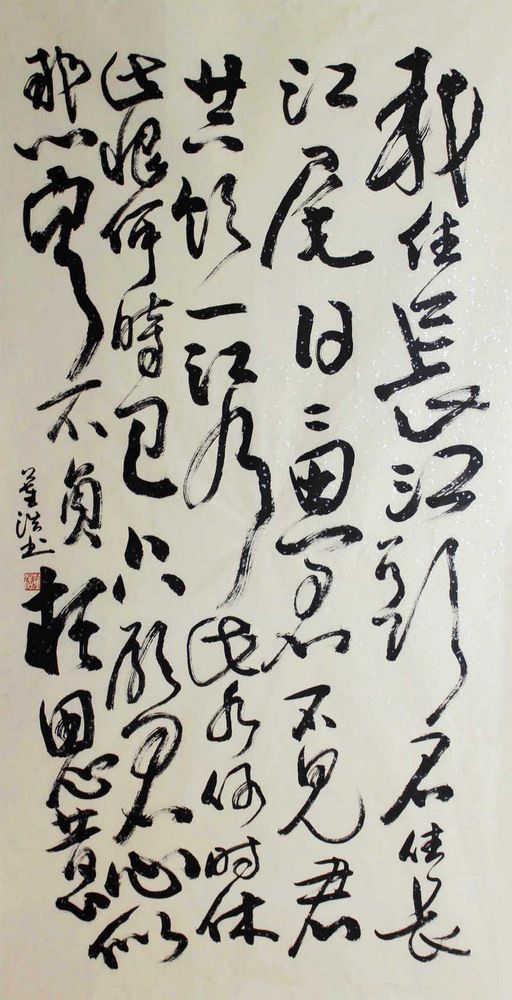 我住長江頭君住長
江尾日〻思君不見君
共飲一江水此水何时休
此恨何時已只願君心似
我心定不負相思意
董浩书